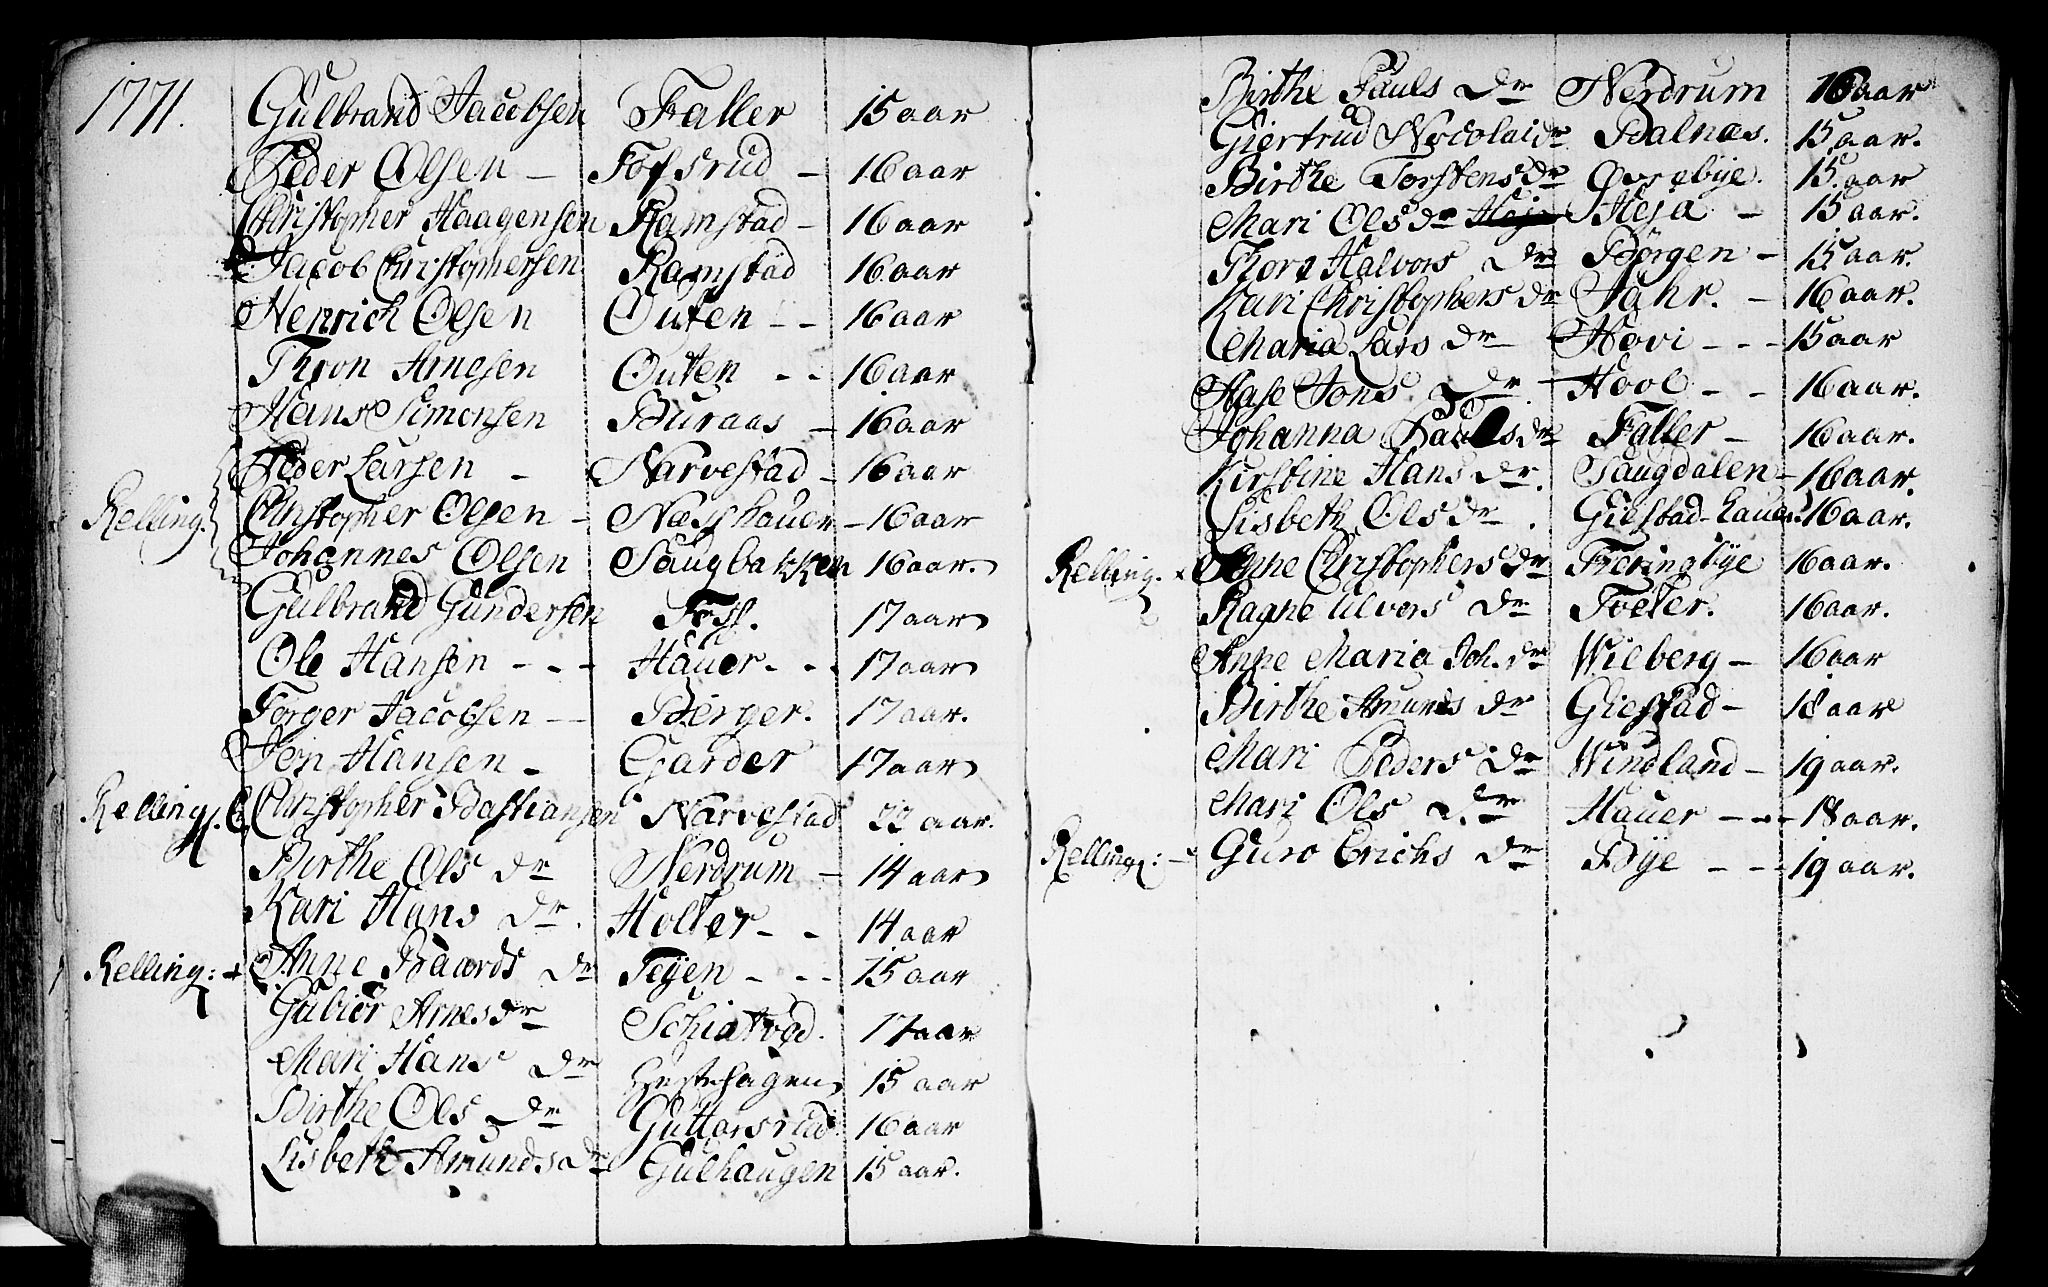 1771. Gulbrand Jacobsen Faller 15 aar
Peder Olsen – Fossrud – 16 aar
Christopher Haagensen Ramstad – 16 aar
Jacob Christophersen Ramstad 16 aar
Henrich Olsen Outen – – 16 aar
Thron Arnesen Outen – – 16 aar
Hans Simensen Buraas – 16 aar
Peder Larsen – Narvestad – 16 aar
Relling: Christopher Olsen – Næsshauer – 16 aar
Johannes Olsen Saugbakken 16 aar.
Gulbrand Gundersen Foss. 17 aar
Ole Hansen – – – Hauer – – – 17 aar
Torger Jacobsen – – Berger. 17 aar.
Jon Hansen – Garder 17 aar
Relling: Christopher Bastiansen Narvestad 22 aar.
Birthe Ols dr Nerdrum – 14 aar
Kari Hans dr. Holter – – 14 aar
Relling: + Anne Baards dr Teyen – – – 15 aar
Gubiør Arnes dr Schiatvod. 17 aar
Mari Hans dr Hestehagen 15 aar
Birthe Ols dr Guttorsrud 16 aar
Lisbeth Amunds dr Gulhaugen 15 aar.
Birthe Pauls dr Nerdrum 16 aar
Giertrud Nicolai dr Balnæs. 15 aar.
Birthe Torstens dr Øvrebye. 15 aar
Mari Ols dr Heja – 15 aar.
Thore Halvors dr Børgen – 15 aar.
Kari Christophers dr Jahr. – 16 aar.
Maria Lars dr Hovi – – – 15 aar
Aase Jons dr. Hool – – 16 aar.
Johanna Pauls dr Faller – 16 aar.
Kirstine Hans dr. Saugdalen – 16 aar.
Lisbeth Ols dr. Gielstad-hauer 16 aar.
Relling. + Anne Christophers dr Fieringbye 16 aar.
Ragne Ulvors dr Toeter. 16 aar.
Anne Maria Joh. dr Wilberg – 16 aar
Birthe Amunds dr Gielstad – 18 aar
Mari Peders dr Windland – 19 aar.
Mari Ols dr Hauer – – – 18 aar.
Relling: – Guro Erichs dr Bye – – – 19 aar.